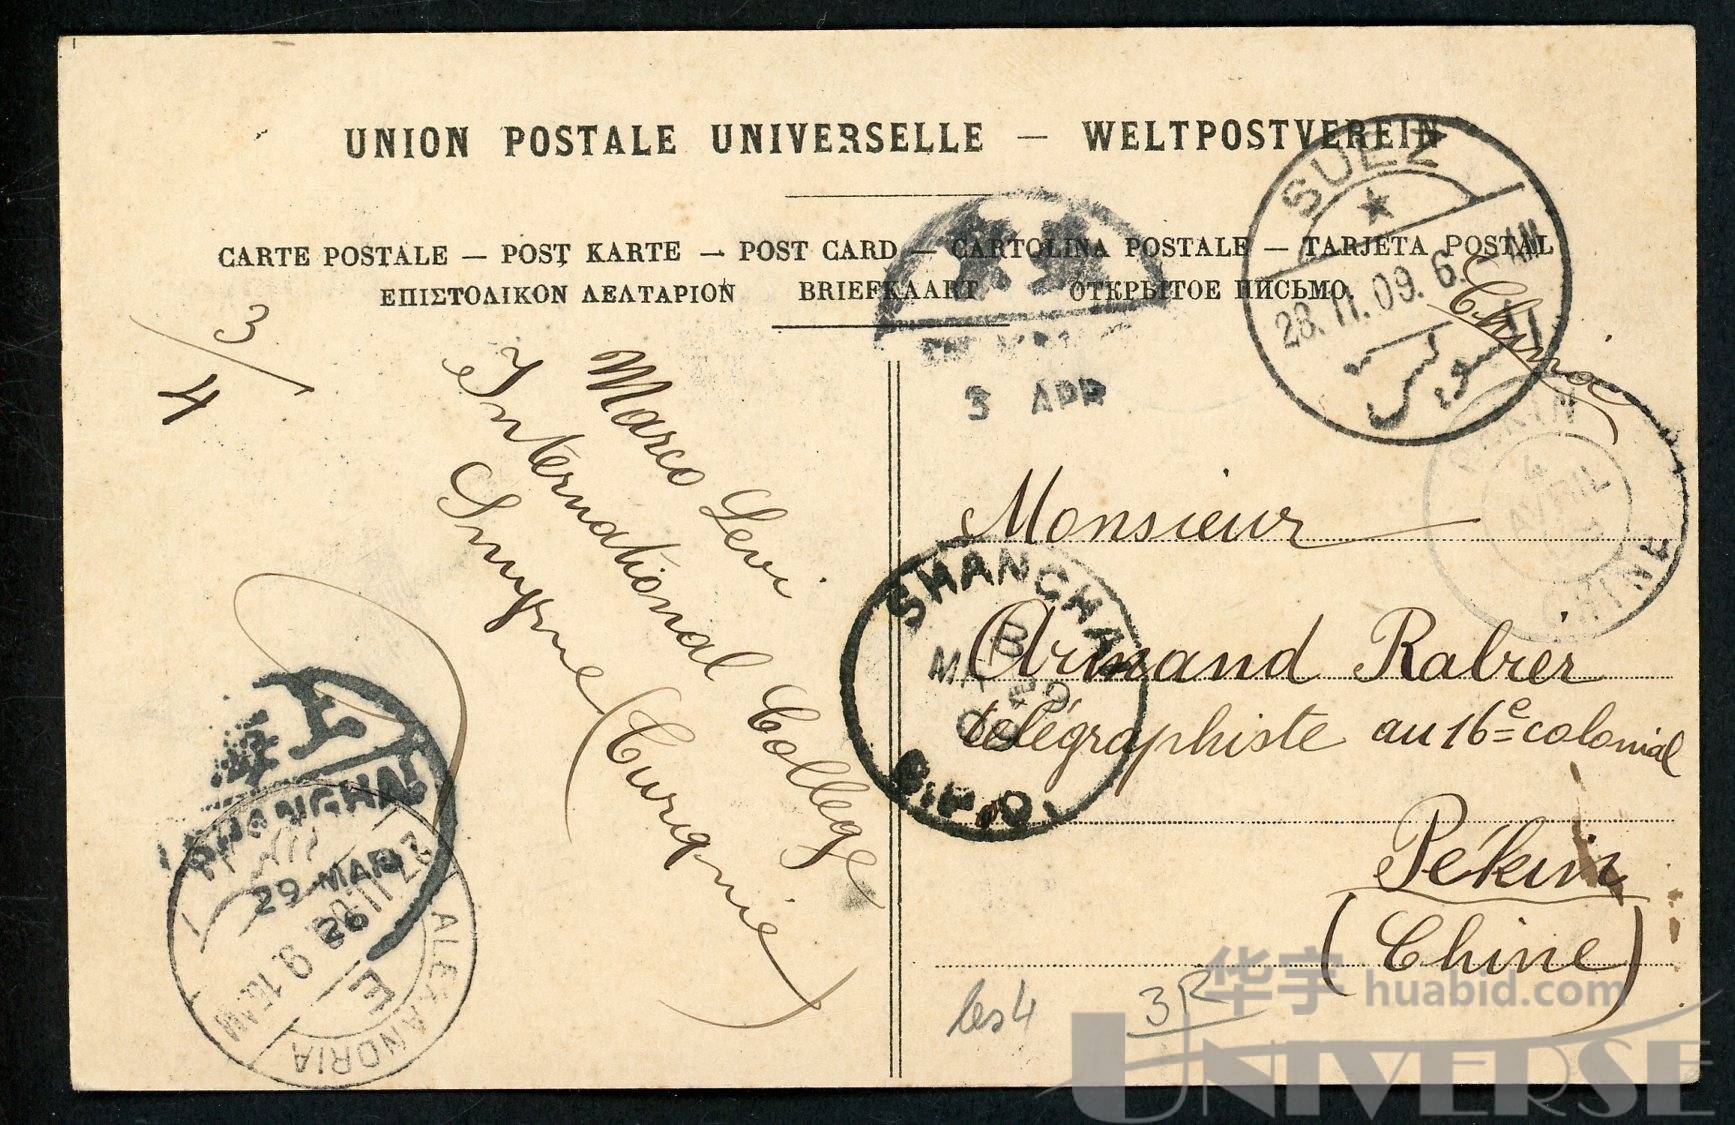 UNION POSTALE UNIVERSELLE — WELTPOSTVEREIN
CARTE POSTALE — POST KARTE — POST CARD — CARTOLINA POSTALE — TARJETA POSTAL
ΕΠΙΣΤΟΛΙΚΟΝ ΔΕΛΤΑΡΙΟΝ BRIEFKAART ОТКРЫТОЕ ПИСЬМО
SUEZ
28.II.09.6. AM
السويس
Chine
3 APR
3/4
Marco Levi
International College
Smyrne (Turquie)
PEKIN
4
AVRIL
CHINE
Monsieur
SHANGHAI
B
MR 29
09
B.P.O.
Armand Rabier
télégraphiste au 16e colonial
Pékin
(Chine)
SHANGHAI
29 MAR
ALEXANDRIA
E
3R
华宇 huabid.com
UNIVERSE